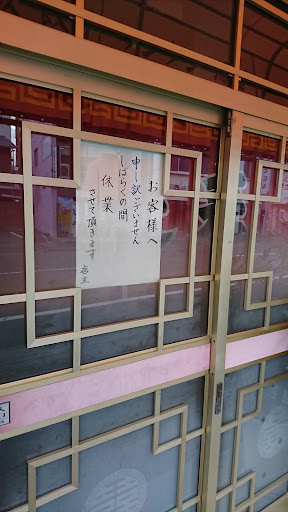 お客様へ
申し訳ございません
しばらくの間
休業
させて頂きます
店主